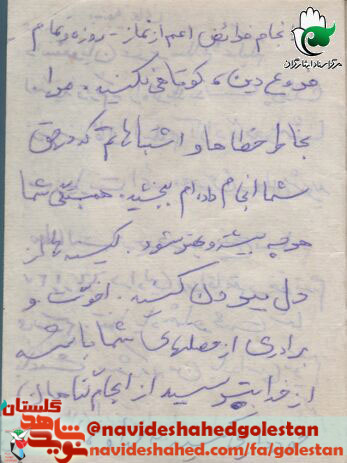 انجام فرائض اعم از نماز - روزه و تمام
فروع دین، کوتاهی نکنید و مرا
بخاطر خطاها و اشتباهاتم که در حق
شما انجام داده‌ام ببخشید. همبستگی شما
هر چه بیشتر و بهتر شود. کینه‌ها از
دل بیرون کنید. اخوت و
برادری از فعلهای شما باشد
از خدا بترسید از انجام گناهان
مرکز اسناد ایثارگران
گلستان
نوید شاهد
@navideshahedgolestan
navideshahed.com/fa/golestan